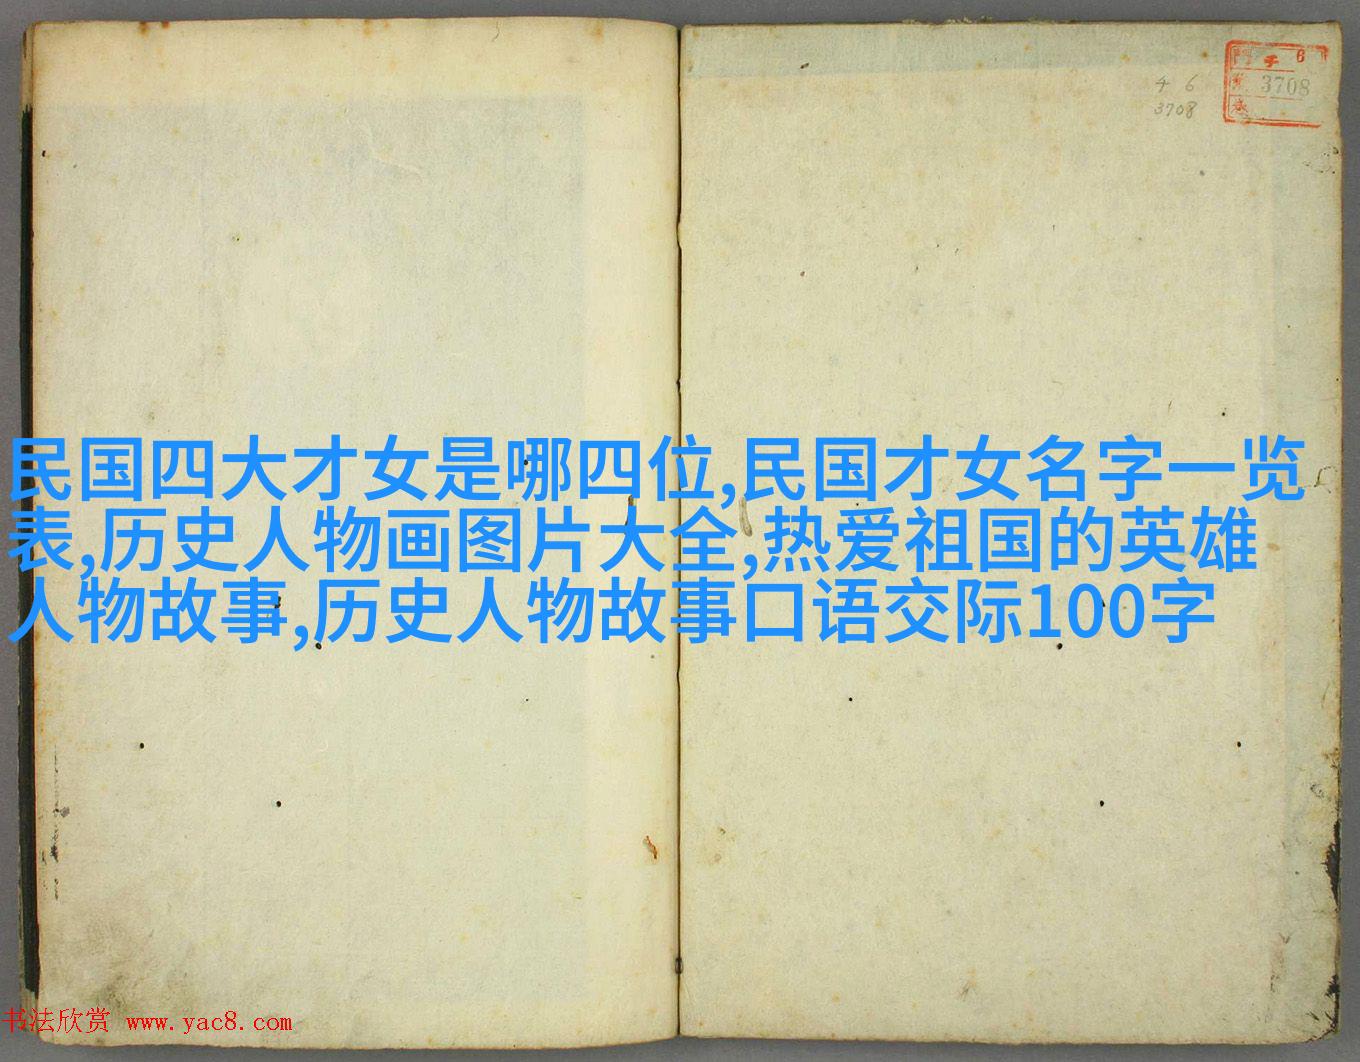 6
3708
4 6
3708
民国四大才女是哪四位,民国才女名字一览
表,历史人物画图片大全,热爱祖国的英雄
人物故事,历史人物故事口语交际100字
书法欣赏 www.yac8.com